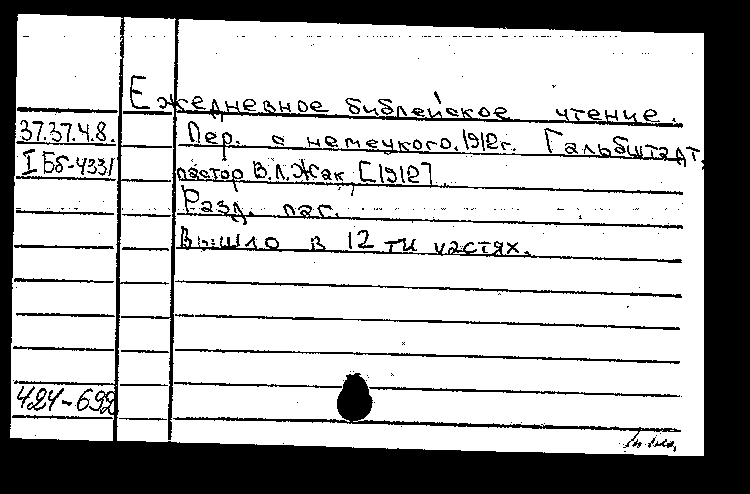 Ежедневное библейское чтение.
37.37.4.8.
Пер. с немецкого. 1912г. Гальбштадт,
I Бб-4331
пастор В.Л.Жак, [1912]
Разд. паг.
Вышло в 12 ти частях.
424-692